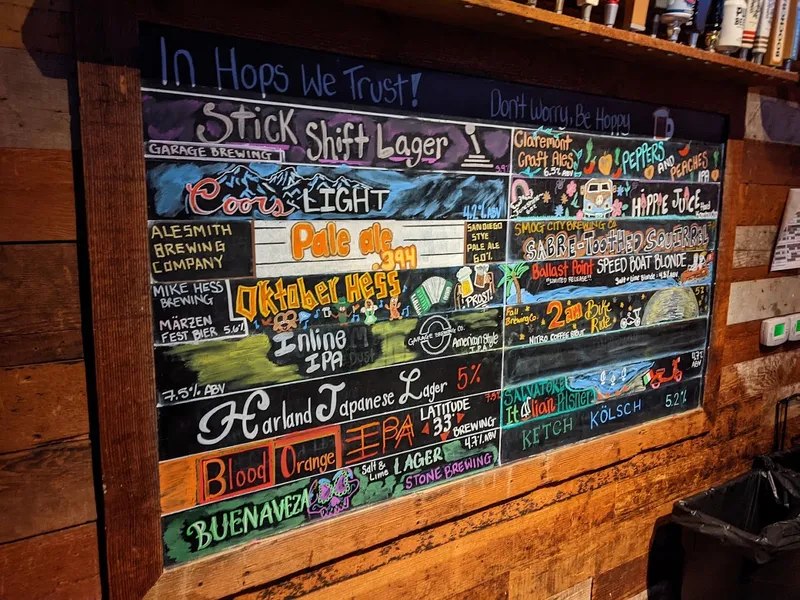 In Hops We Trust!
Don't Worry, Be Hoppy
Stick Shift Lager
GARAGE BREWING
Coors LIGHT
4.2% ABV
ALESMITH
BREWING
COMPANY
Pale ale
.394
SAN DIEGO
STYE
PALE ALE
6.0%
MIKE HESS
BREWING
MÄRZEN
FEST BIER 5.6%
Oktober Hess
PROST!
Inline
IPA
GARAGE BREWING CO.
American Style
IPA
7.5% ABV
Harland Japanese Lager 5%
Blood Orange IPA
LATITUDE
33°
BREWING
BUENAVEZA
Salt &
Lime
LAGER
4.7% ABV
STONE BREWING
Claremont
Craft Ales
6.5% ABV
PEPPERS
AND
PEACHES
IPA
HIPPIE JUICE
SMOG CITY BREWING CO
SABRE-TOOTHED SQUIRREL
Ballast Point SPEED BOAT BLONDE
"LIMITED RELEASE"
Salt + Lime Blonde
Fall
Brewing Co.
2am Bike
Ride
NITRO COFFEE STOUT
SALVATORE
Italian Pilsner
4.7%
KETCH KÖLSCH 5.2%